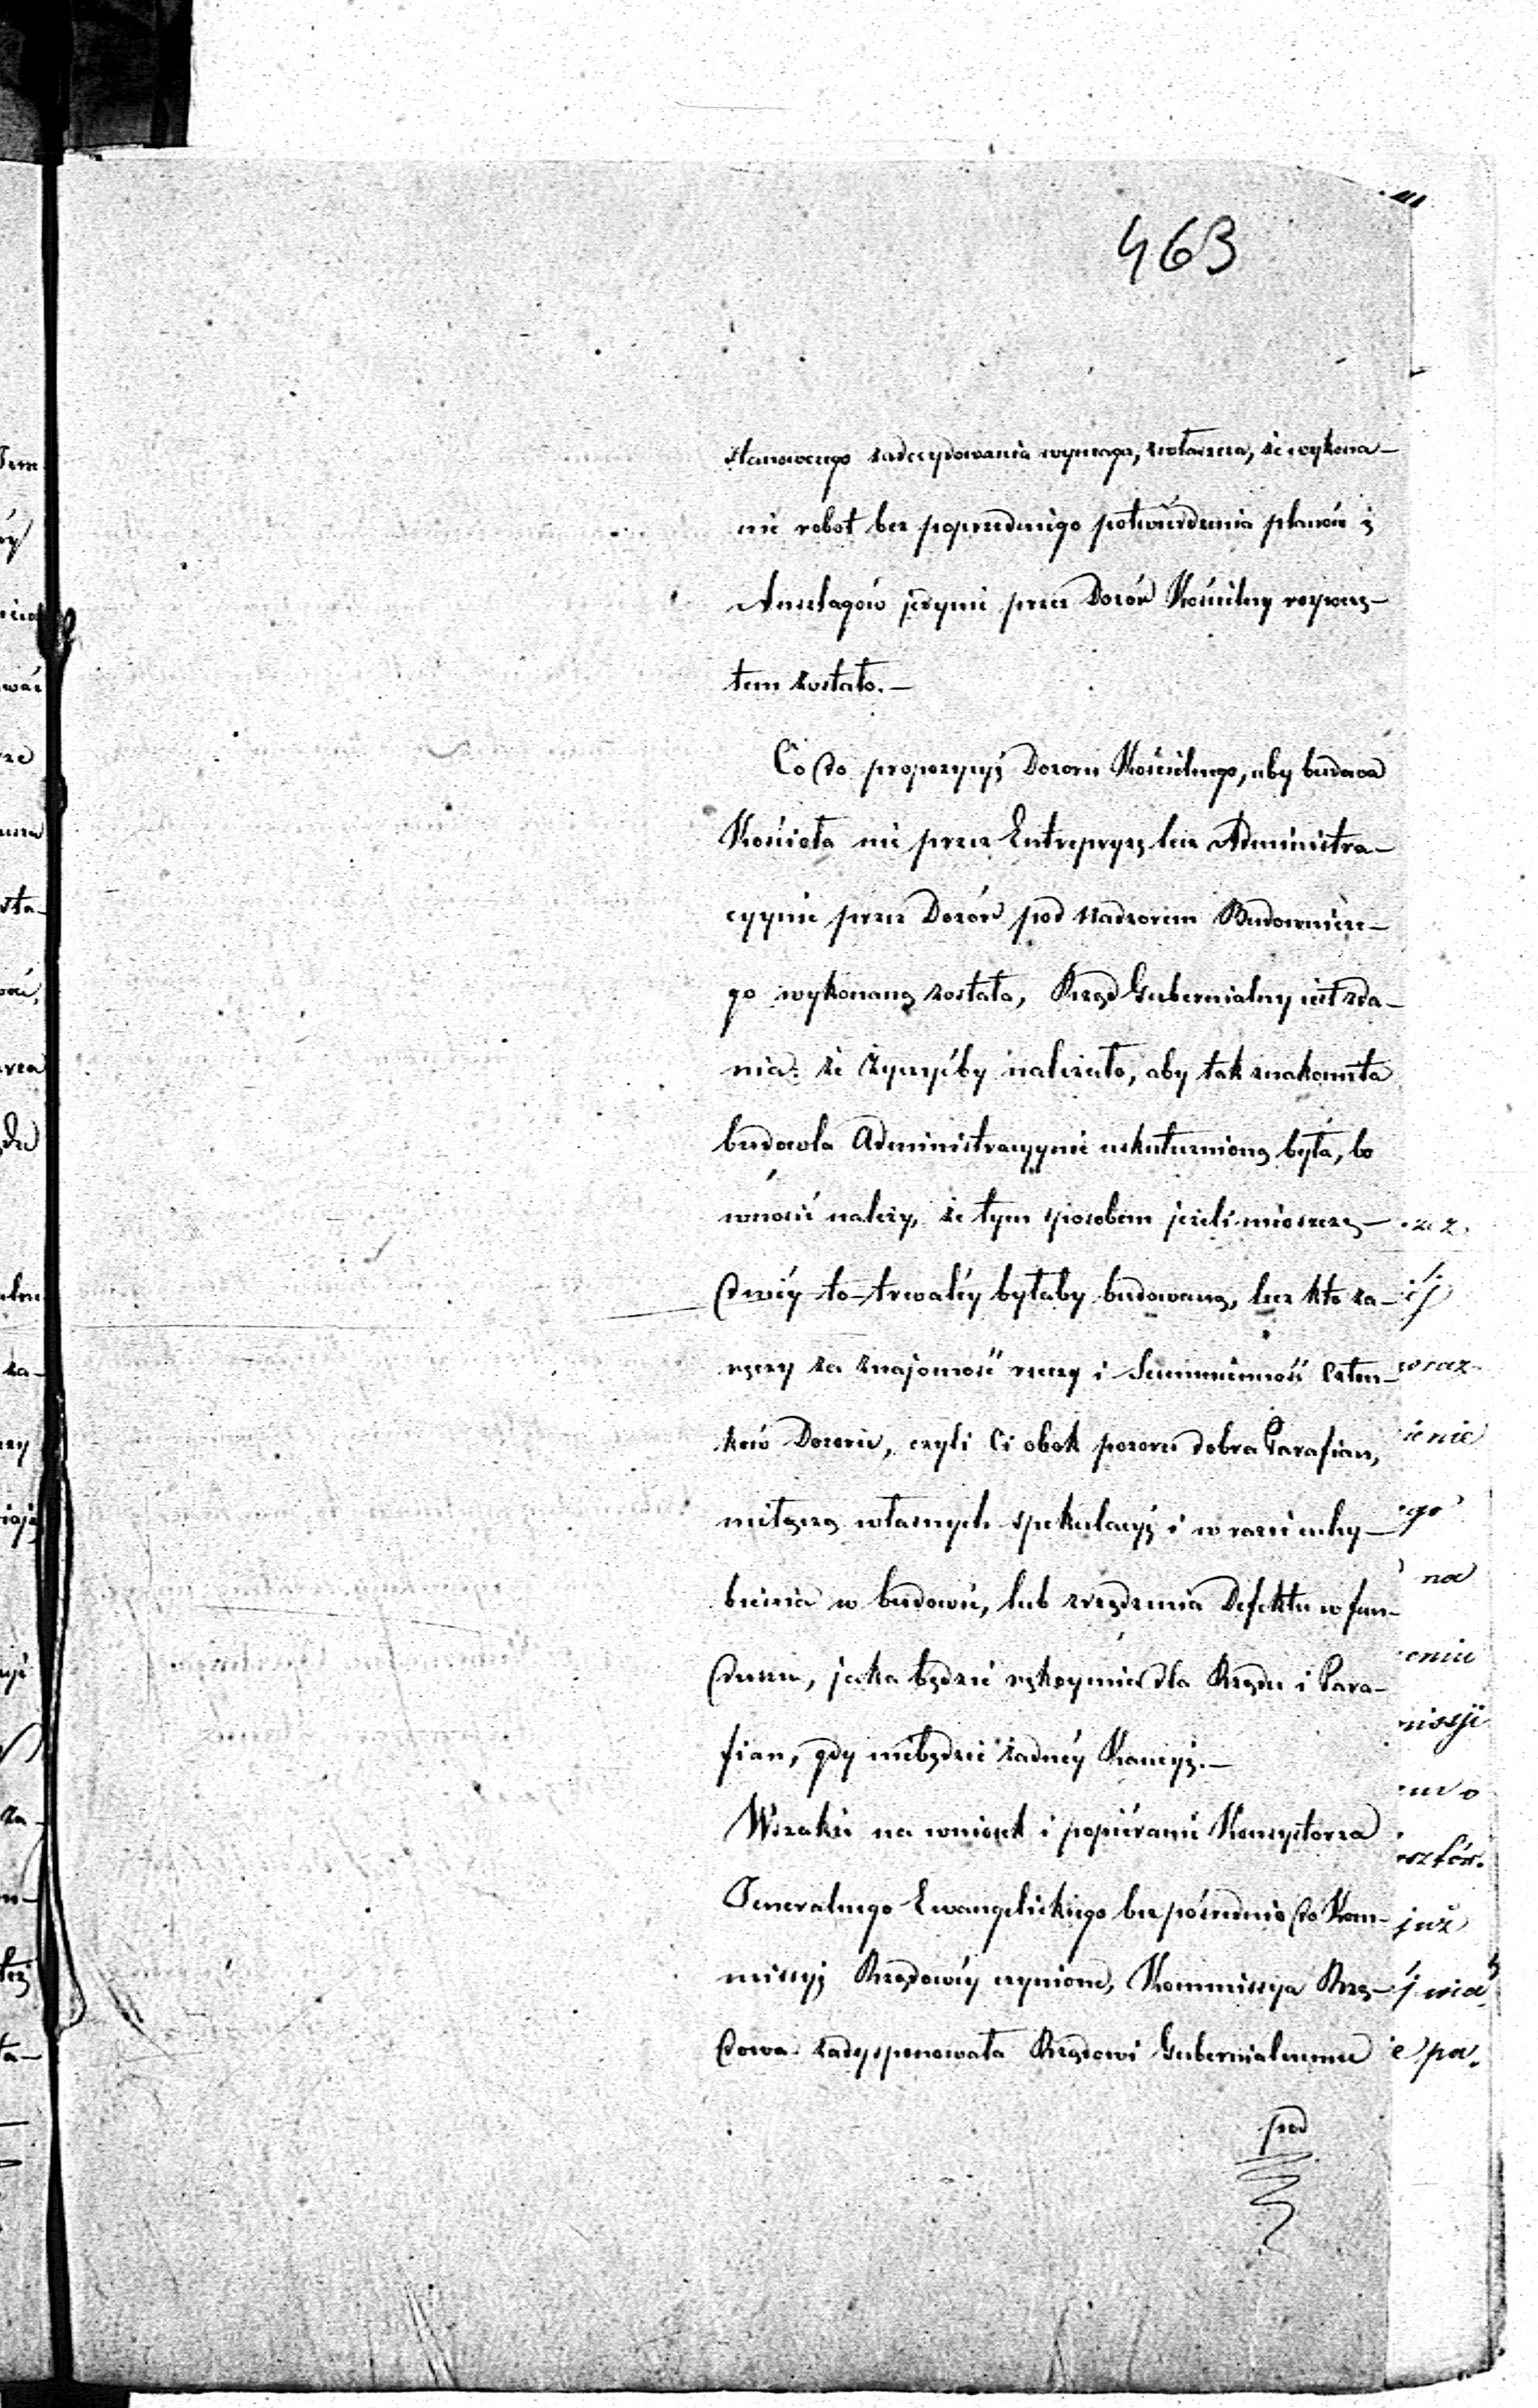 463
stanowczego zadecydowania wymaga, zwłaszcza, że wykona-
nie robot bez poprzedniego potwierdzenia planów i
Anszlagów jedynie przez Dozór Kościelny rozpoczę-
tem zostało.-
Co do propozycyj Dozoru Kościelnego, aby budowa
Kościoła nie przez Entrepryzę lecz Administra-
cyjnie przez Dozór pod nadzorem Budownicze-
go wykonaną została, Rząd Gubernialny jest zda-
nia: że życzyćby należało, aby tak znakomita
budowla Administracyjnie uskutecznioną była, bo
wnosić należy, że tym sposobem jeżeli nie oszczę-
dniéy to trwaléy byłaby budowaną, lecz kto za-
ręczy za znajomość rzeczy i Summienność Człon-
ków Dozoru, czyli Ci obok pozoru dobra Parafian,
nie łączą własnych spekulacyj i w razie uchy-
bienia w budowie, lub zrządzenia Defektu w fun-
duszu, jaka będzie rękoymia dla Rządu i Para-
fian, gdy niebędzie żadnéy Kaucyi.-
Wszakże na wniosek i popiéranie Konsystorza
Jeneralnego Ewangelickiego bezpośrednio do Kom-
missyi Rządowéy czynione, Kommissya Rzą-
dowa zadysponowała Rządowi Gubernialnemu
pod